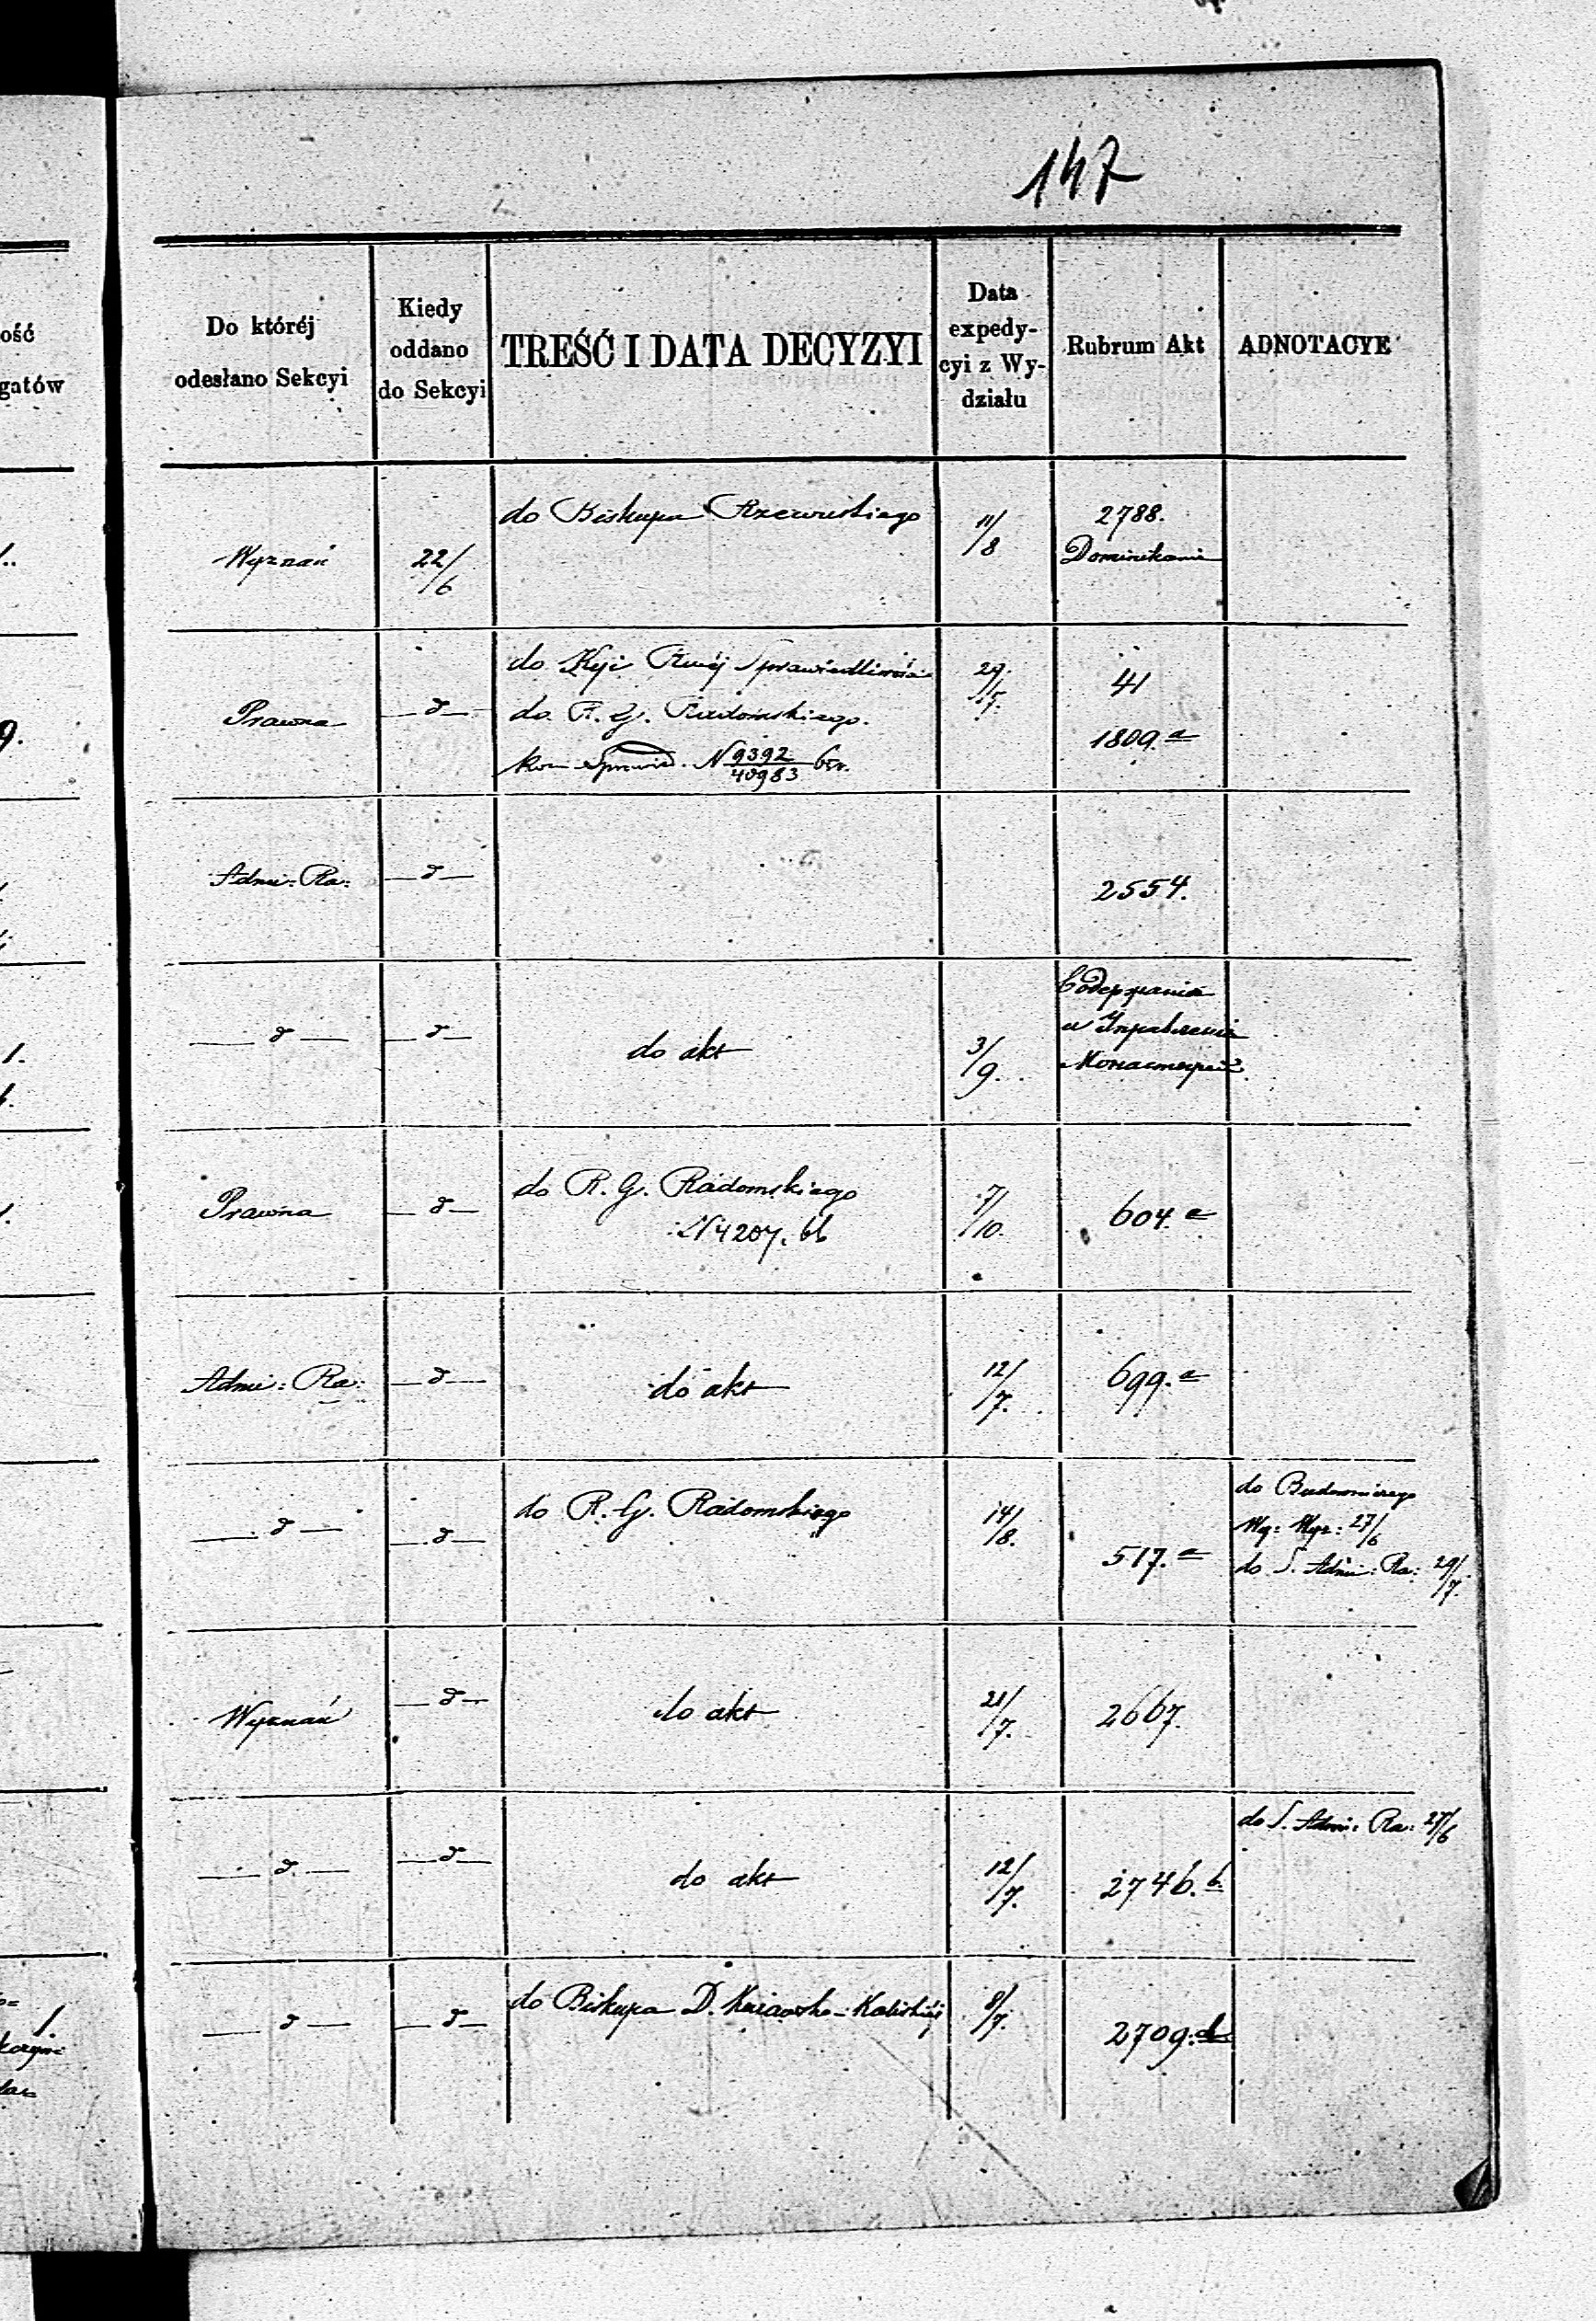 147
ość
gatów
Do któréj
odesłano Sekcyi
Kiedy
oddano
do Sekcyi
TREŚĆ I DATA DECYZYI
Data
expedy-
cyi z Wy-
działu
Rubrum Akt
ADNOTACYE
Wyznań
22/6
do Biskupa Rzewuskiego
11/8
2788.
Dominikanie
9.
Prawna
—d—
do Kyi Rząj Sprawiedliwości
do R. G. Radomskiego.
Kom Sprawied. N 9392/40983 65r.
29/7.
41
1809.a
Admi: Ra:
—d—
2554.
1.
—d—
—d—
do akt
3/9.
Содержания
и Управления
Монастырей
Prawna
—d—
do R. G. Radomskiego
N 4207. 66
7/10.
604.a
Admi: Ra:
—d—
do akt
12/7.
699.a
—d—
—d—
do R. G. Radomskiego
14/8.
517.a
do Budowniczego
Wy: Wyz: 27/6
do S. Admi: Ra: 29/7.
Wyznań
—d—
do akt
21/7.
2667.
—d—
—d—
do akt
12/7.
2746.b
do S. Admi: Ra: 27/6
—d—
—d—
do Biskupa D. Kujawsko-Kaliskiéj
8/7.
2709.d